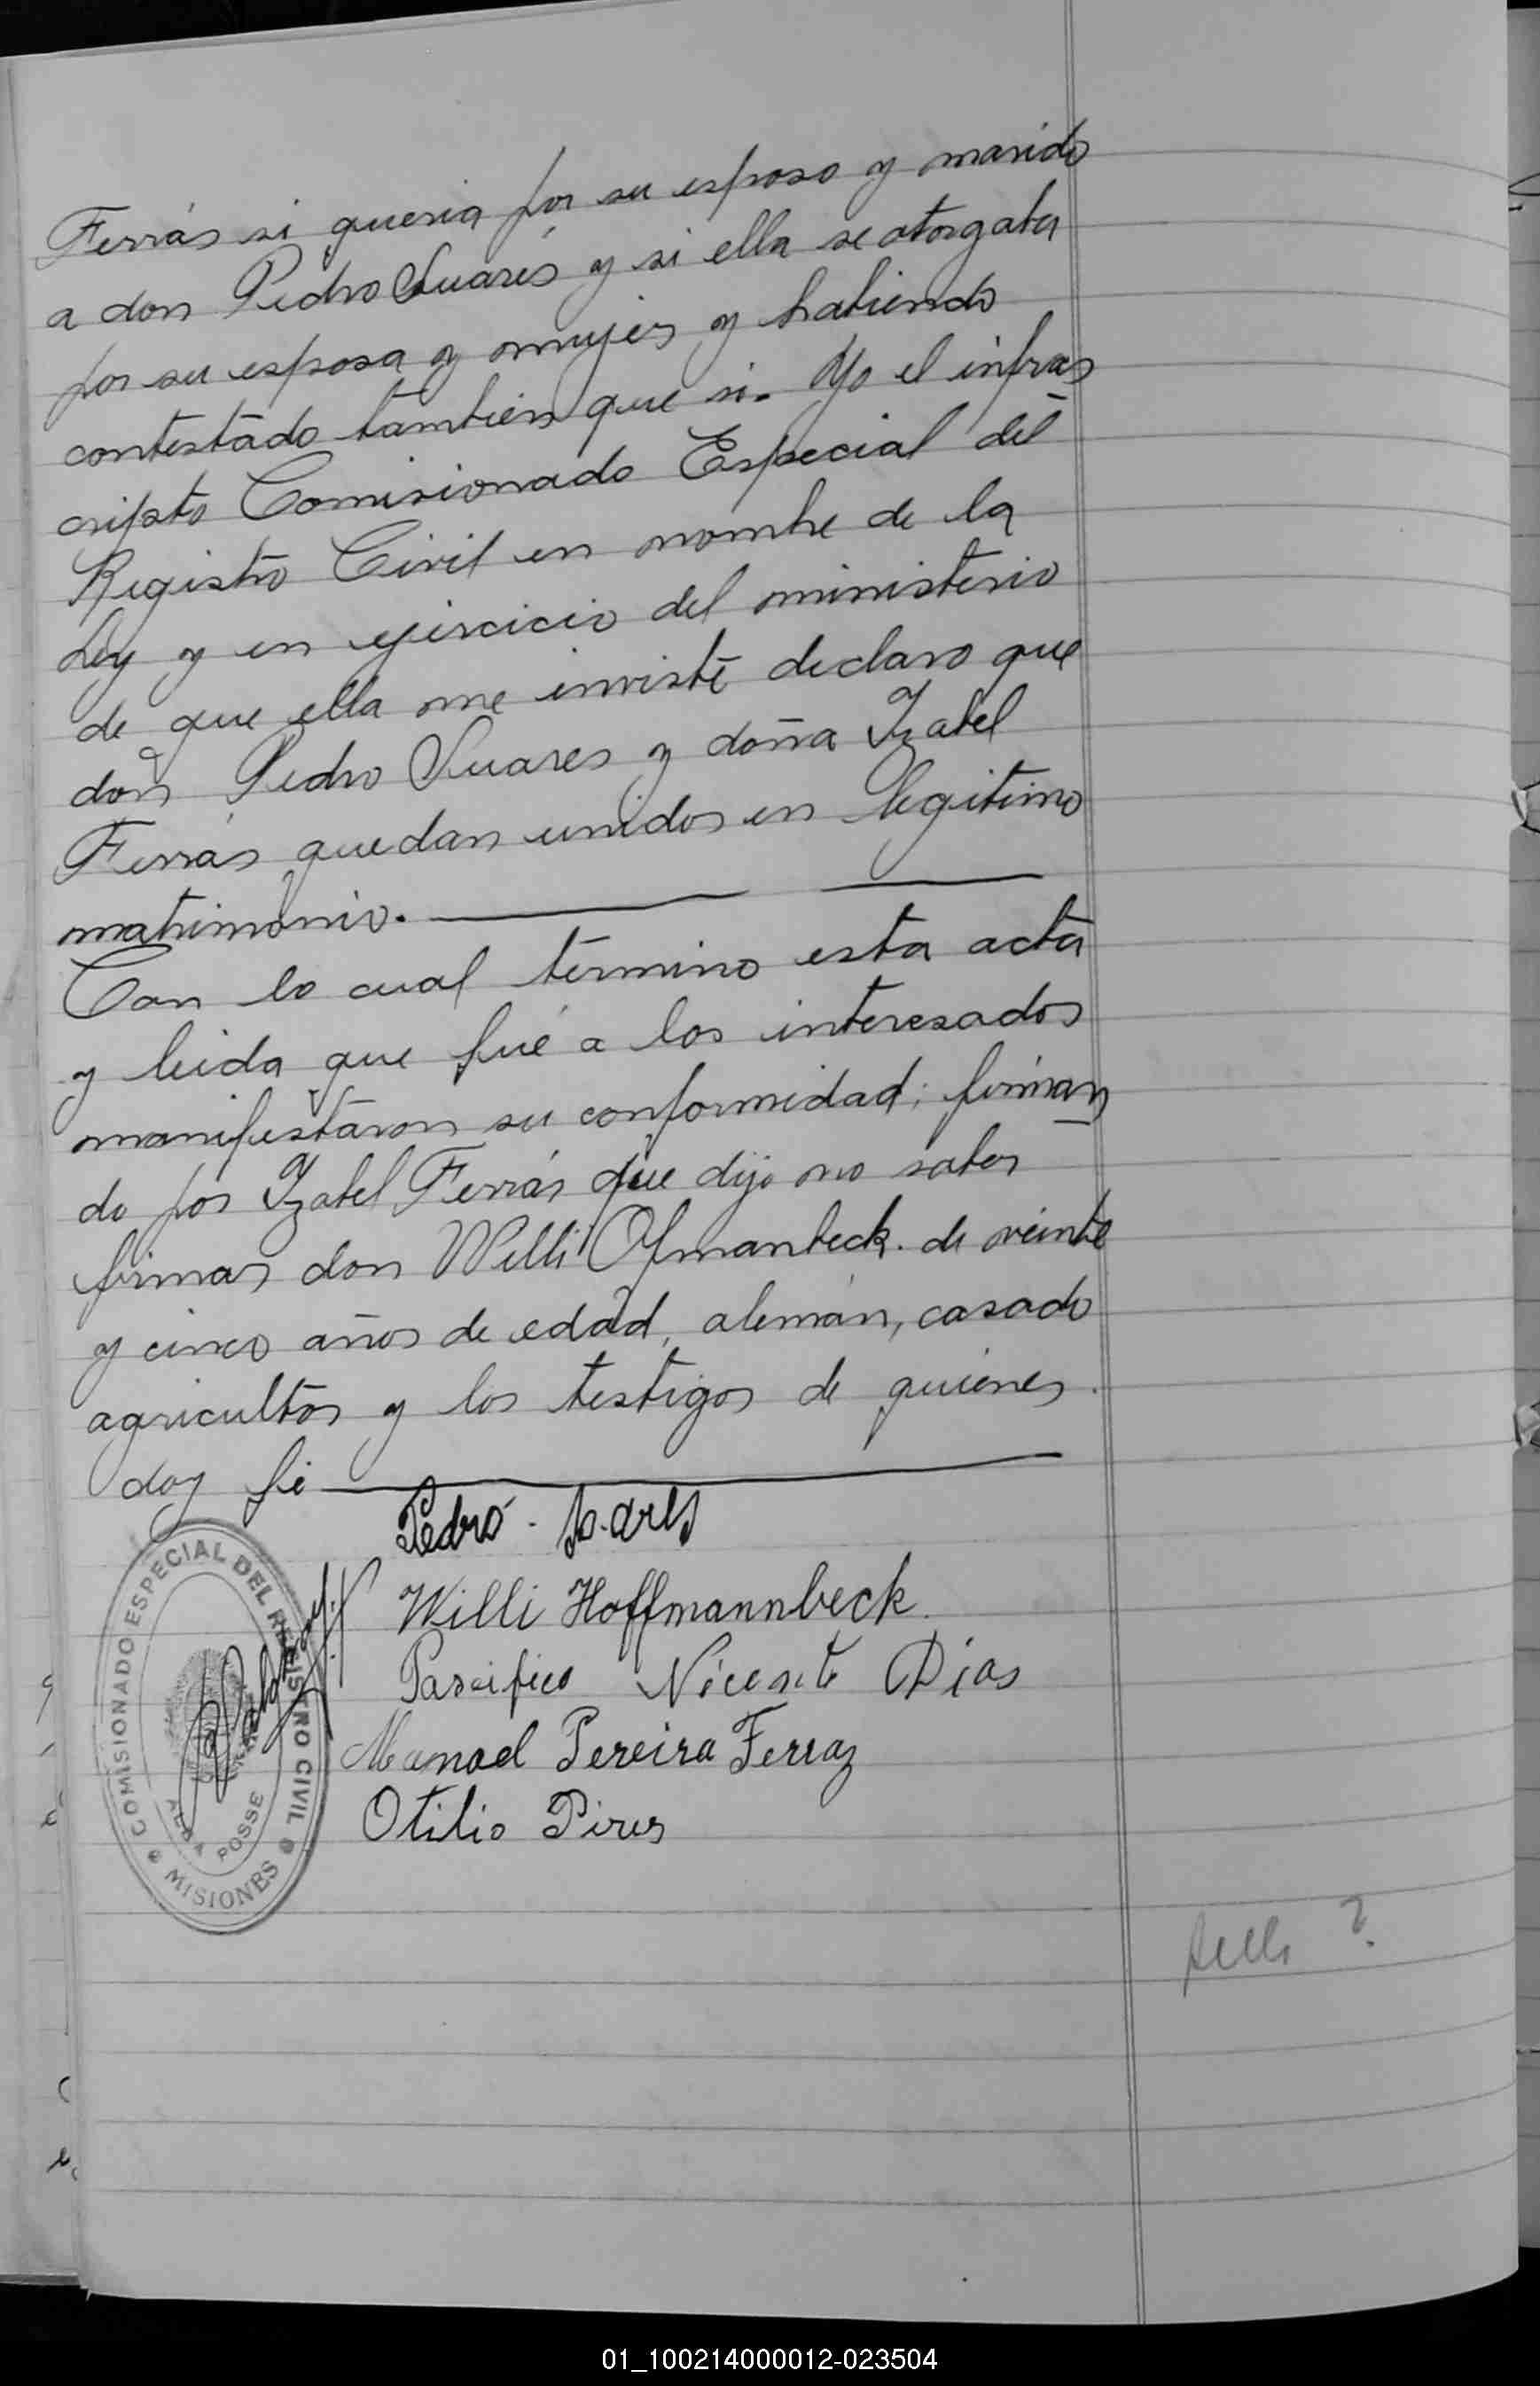 Ferrás si queria por su esposo y marido
a don Pedro Suarés y si ella se otorgaba
por su esposa y mujer y habiendo
contestado tambien que si. Yo el infras
cripto Comisionado Especial del
Registro Civil en nombre de la
Ley y en ejercicio del ministerio
de que ella me inviste declaro que
don Pedro Suares y doña Izabel
Ferrás quedan unidos en legitimo
matrimonio.
Con lo cual termino esta acta
y leida que fué a los interesados
manifestaron su conformidad; firman
do por Izabel Ferrás que dijo no saber
firmar don Willi Ofmanbeck. de veinte
y cinco años de edad, alemán, casado
agricultor y los testigos de quienes
doy fé
Pedro
Willi Hoffmannbeck.
Parcifico Nicente Dias
Manoel Pereira Ferraz
Otilio Pires
COMISIONADO ESPECIAL DEL REGISTRO CIVIL
ALBA POSSE
MISIONES
sello ?
01_100214000012-023504